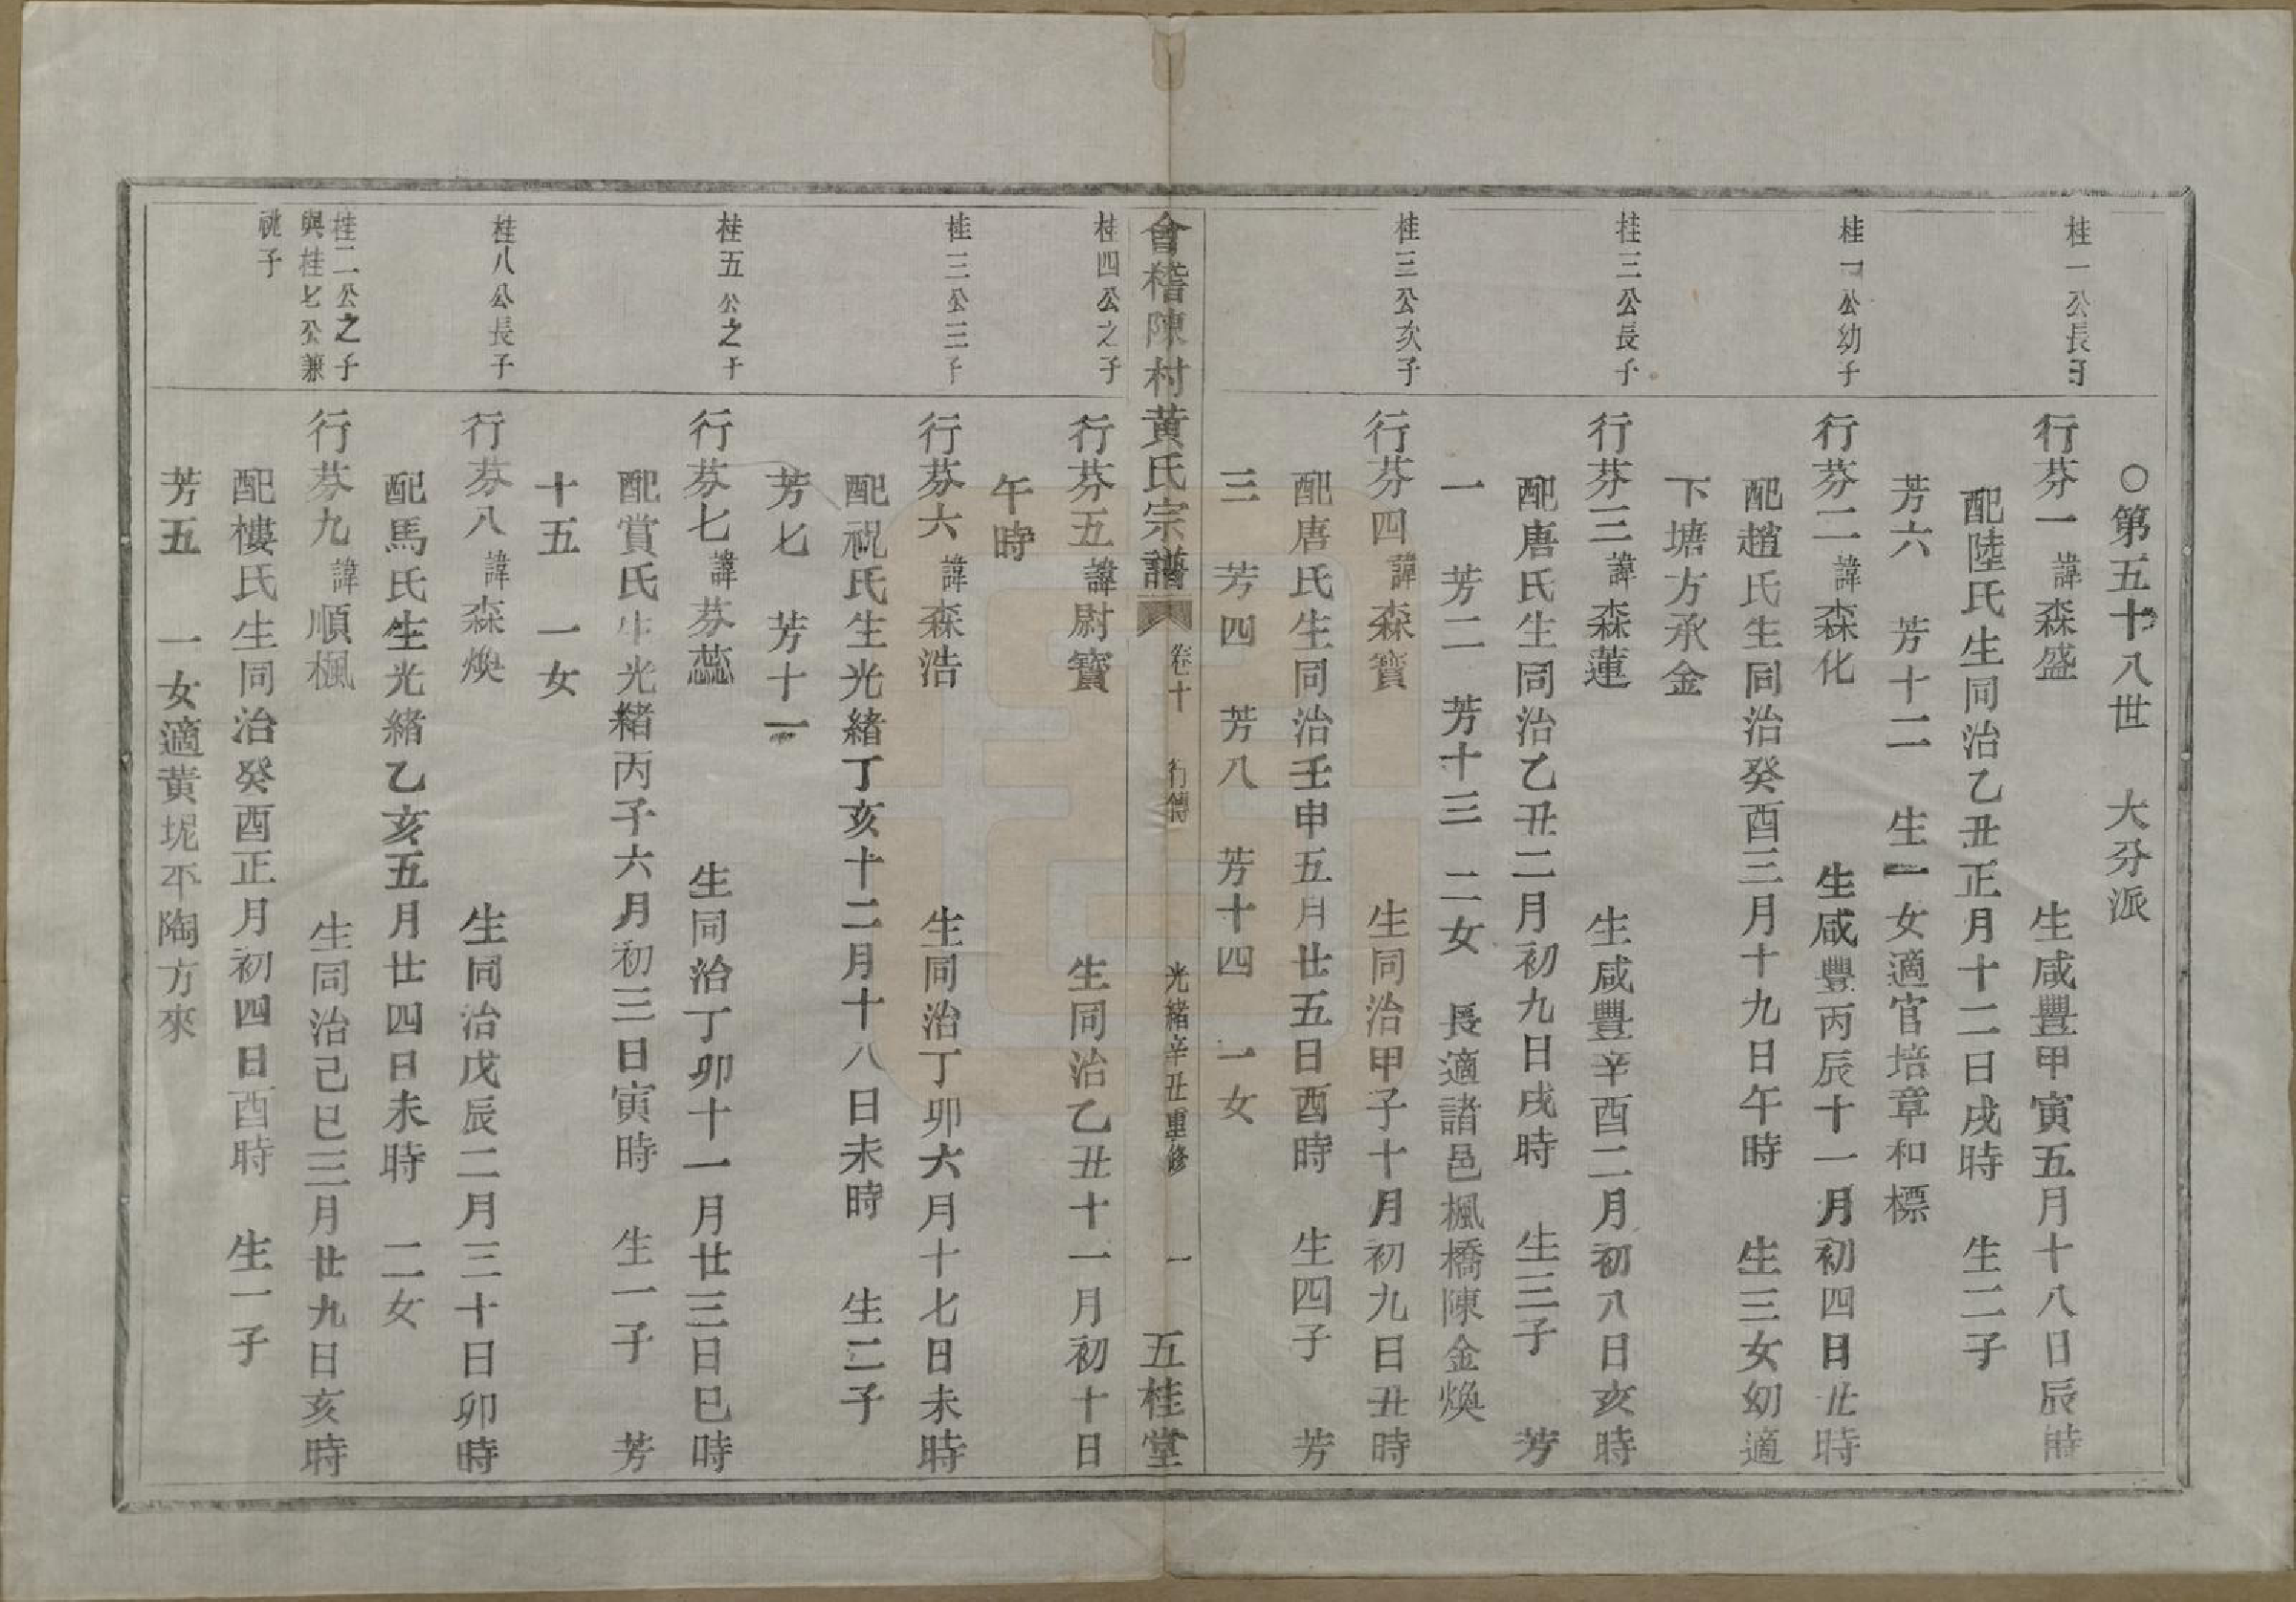 ○第五十八世　大分派
桂一公長子
行芬一諱森盛　生咸豐甲寅五月十八日辰時
配陸氏生同治乙丑正月十二日戌時　生二子
芳六　芳十二　生一女適官培章和標
桂一公幼子
行芬二諱森化　生咸豐丙辰十一月初四日丑時
配趙氏生同治癸酉三月十九日午時　生三女幼適
下塘方承金
桂三公長子
行芬三諱森蓮　生咸豐辛酉二月初八日亥時
配唐氏生同治乙丑二月初九日戌時　生三子　芳
一　芳二　芳十三　二女　長適諸邑楓橋陳金煥
桂三公次子
行芬四諱森寶　生同治甲子十月初九日丑時
配唐氏生同治壬申五月廿五日酉時　生四子　芳
三　芳四　芳八　芳十四　一女
會稽陳村黃氏宗譜　卷十　行傳　光緒辛丑重修　一　五桂堂
桂四公之子
行芬五諱尉寶　生同治乙丑十一月初十日
午時
桂三公三子
行芬六諱森浩　生同治丁卯六月十七日未時
配祝氏生光緒丁亥十二月十八日未時　生二子
芳七　芳十一
桂五公之子
行芬七諱芬蕊　生同治丁卯十一月廿三日巳時
配賞氏生光緒丙子六月初三日寅時　生一子　芳
十五　一女
桂八公長子
行芬八諱森煥　生同治戊辰二月三十日卯時
配馬氏生光緒乙亥五月廿四日未時　二女
桂二公之子
與桂七公兼
祧子
行芬九諱順楓　生同治己巳三月廿九日亥時
配樓氏生同治癸酉正月初四日酉時　生一子
芳五　一女適黃坭不陶方來